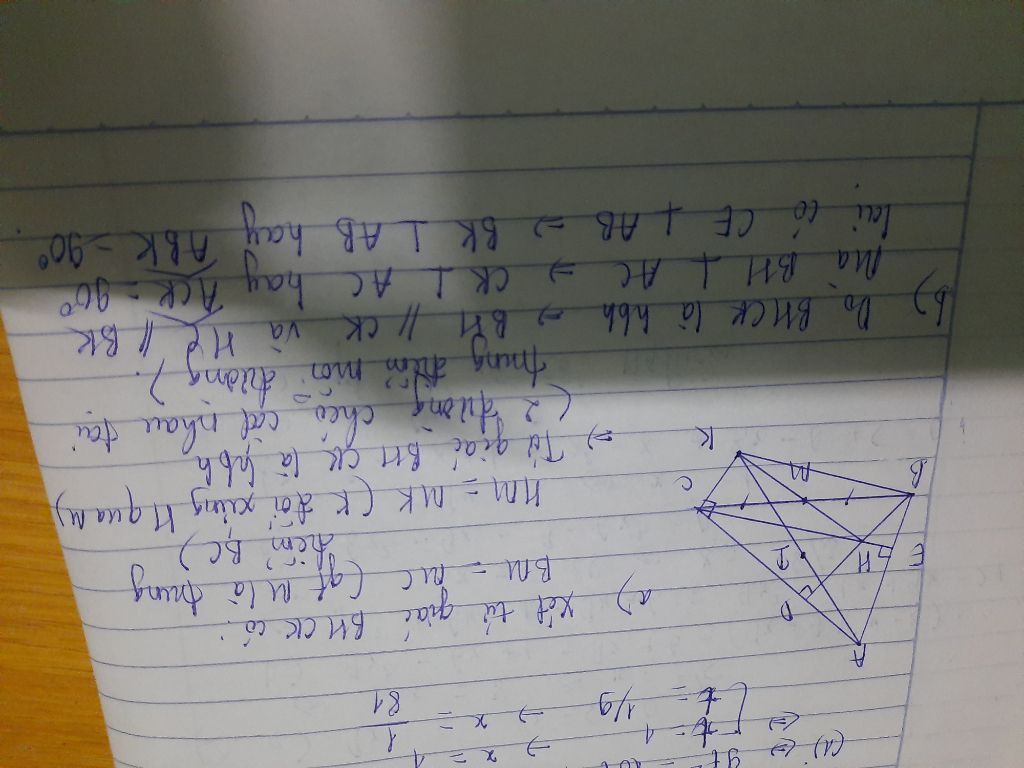 (1) ⇔ 9t
⇔ [ t = 1 → x = 1
t = 1/9 → x = 1/81
a) Xét tứ giác BHCK có:
BM = MC (gt M là trung
điểm BC)
HM = MK (K đối xứng H qua M)
⇒ Tứ giác BHCK là hbh
(2 đường chéo cắt nhau tại
trung điểm mỗi đường).
b) Do BHCK là hbh ⇒ BH // CK và HC // BK
Mà BH ⊥ AC ⇒ CK ⊥ AC hay ACK = 90°
lại có CE ⊥ AB ⇒ BK ⊥ AB hay ABK = 90°.
A
D
E
H
I
B
M
C
K